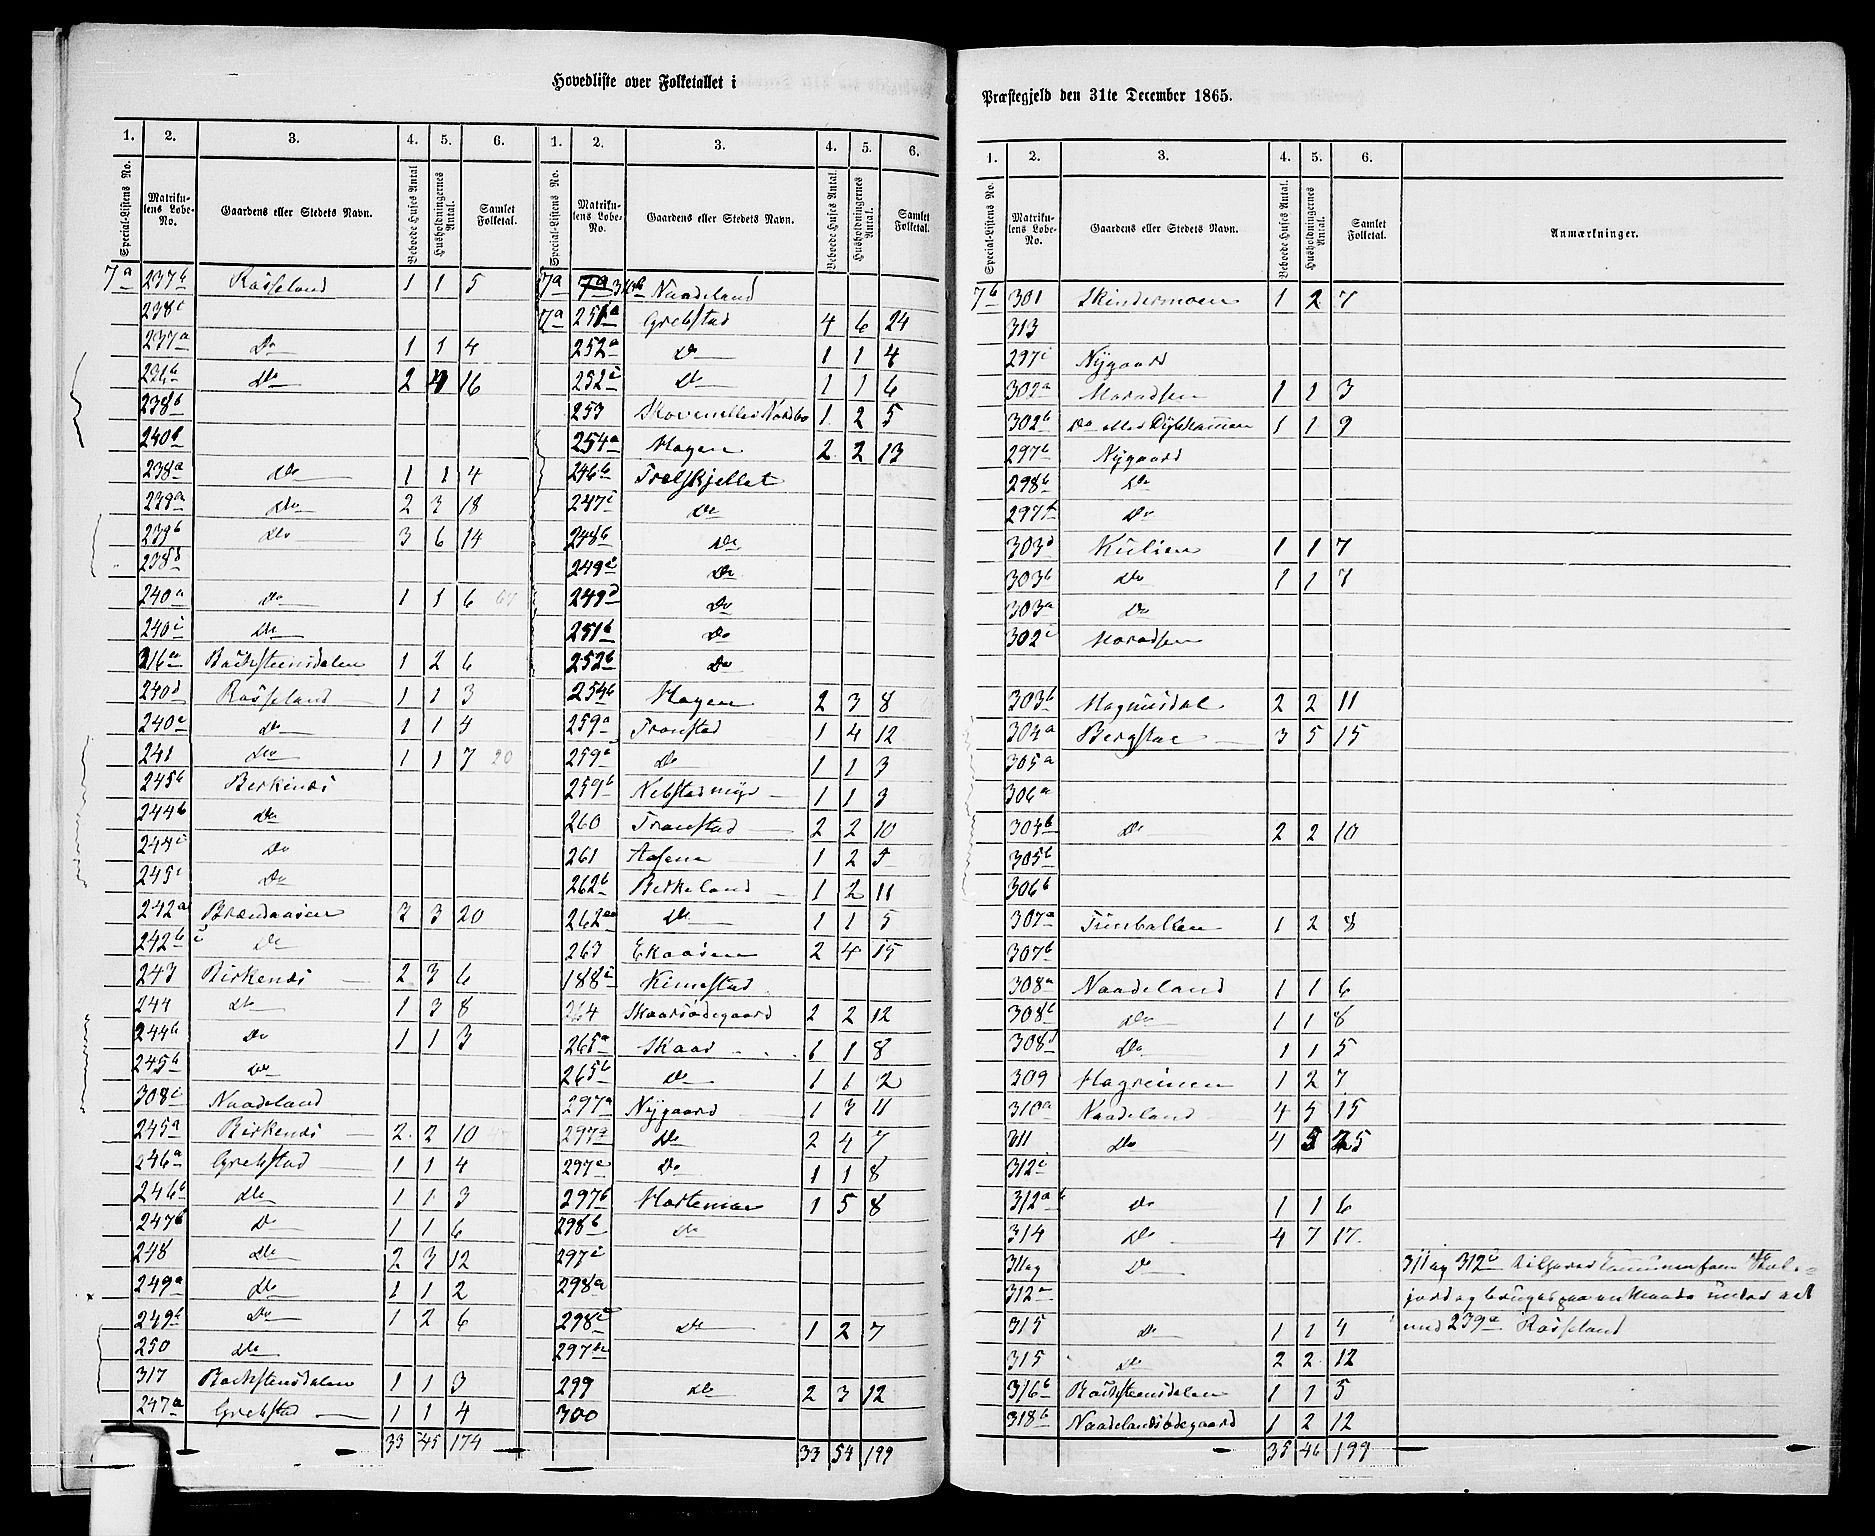 Hovedliste over Folketallet i
1. 2. 3. 4. 5. 6. 1. 2. 3. 4. 5. 6.
Special-Listens No. Matrikulens Løbe-No. Gaardens eller Stedets Navn. Beboede Huses Antal Husholdningernes Antal. Samlet Folketal. Special-Listens No. Matrikulens Løbe-No. Gaardens eller Stedets Navn. Beboede Huses Antal. Husholdningernes Antal. Samlet Folketal.
7a 237b Rosseland 1 1 5
238c
237a Do 1 1 4
236b Do 2 4 16
238b
240b
238a Do 1 1 4
239a Do 2 3 18
239b Do 3 6 14
238d
240a Do 1 1 6 67
240c Do
316a Backsteensdalen 1 2 6
240d Rosseland 1 1 3
240e Do 1 1 4
241 Do 1 1 7 20
245b Birkenæs
244b Do
244c Do
245c Do
242a Brændaasen 3 3 20
242b c Do
243 Birkenæs 2 3 6
244 Do 1 3 8
244b Do 1 1 3
245b Do
308c Naadeland
245a Birkenæs 2 2 10
246a Grebstad 1 1 4
246b Do 1 1 3
247b Do 1 1 6
248 Do 2 3 12
249a Do 1 1 2
249b Do 1 2 6
250 Do
317 Backstensdalen 1 1 3
247a Grebstad 1 1 4
33 45 174
7a Naadeland
7a 251a Grebstad 4 6 24
252a Do 1 1 4
252c Do 1 1 6
253 1 2 5
254a Hagen 2 2 13
246b Trolskjellet
247c Do
248b Do
249c Do
249d Do
251b Do
252b Do
254b Hagen 2 3 8
259a Tronstad 1 4 12
259c Do 1 1 3
259b Nebstadmyr 1 1 3
260 Tronstad 2 2 10
261 Aasene 1 2 5
262b Birkeland 1 2 11
262a Do 1 1 5
263 Ekaasen 2 4 15
188c Kimestad
264 Skaarsødegaard 2 2 12
265a Skaar 1 1 8
265b Do 1 1 2
297a Nygaard 1 3 11
297a Do 2 4 7
297e Do 1 1 8
297b Mortemoe 1 5 8
298b Do
297c
298a
298c Do 1 2 7
297
299 Do 2 3 12
300
33 54 199
Præstegjeld den 31te December 1865.
1. 2. 3. 4. 5. 6.
Special-Listens No. Matrikulens Løbe-No. Gaardens eller Stedets Navn. Beboede Huses Antal. Husholdningernes Antal. Samlet Folketal. Anmærkninger.
7b 301 Skindermoen 1 2 7
313
297i Nygaard
302a Moradsen 1 1 3
302b Do med 1 1 9
297b Nygaard
298b Do
297f Do
303d Kulien 1 1 7
303b Do 1 1 7
303a Do
302c Moradsen
303b Magnusdal 2 2 11
304a Bergstøe 3 5 15
305a
306a
304b Do 2 2 10
305b
306b
307a Timballen 1 2 8
307b
308a Naadeland 1 1 6
308b Do 1 1 8
308d Do 1 1 5
309 Hagreinen 1 2 7
310a Naadeland 4 5 15
311 Do 4 5 25
312c
312a b Do 1 1 6
314 Do 4 7 17
311 og Do 311 og 312c
312c jord og bruges
315 Do 1 1 4 med 239a Rosseland
315 Do 2 2 12
316b Backsteensdalen 1 1 5
318b Naadelandsødegaard 1 2 12
35 46 199